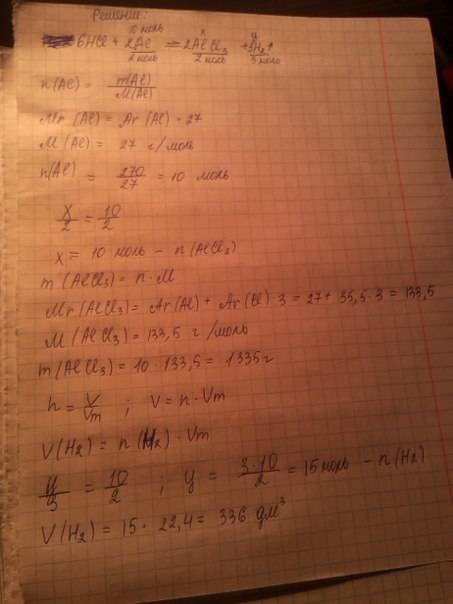 Решение:
10 моль x y
6HCl + 2Al = 2AlCl₃ + 3H₂↑
2 моль 2 моль 3 моль
n(Al) = m(Al)/M(Al)
Mr (Al) = Ar (Al) = 27
M (Al) = 27 г/моль
n(Al) = 270/27 = 10 моль
x/2 = 10/2
x = 10 моль – n(AlCl₃)
m (AlCl₃) = n · M
Mr (AlCl₃) = Ar(Al) + Ar(Cl) · 3 = 27 + 35,5 · 3 = 133,5
M (AlCl₃) = 133,5 г /моль
m (AlCl₃) = 10 · 133,5 = 1335 г
n = V/Vm ; V = n · Vm
V(H₂) = n (H₂) · Vm
y/3 = 10/2 ; y = 3·10/2 = 15 моль – n(H₂)
V(H₂) = 15 · 22,4 = 336 дм³